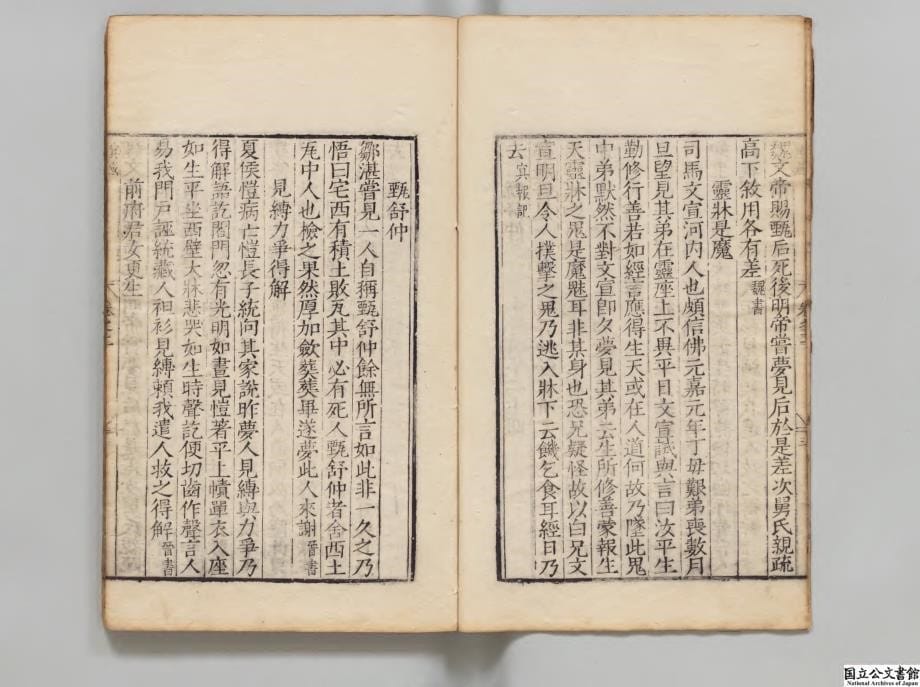 魏文帝賜甄后死後明帝嘗夢見后於是差次舅氏親疏
高下敘用各有差魏書
靈牀是魔
司馬文宣河內人也頗信佛元嘉元年丁母艱弟喪數月
旦望見其弟在靈座上不異平日文宣試與言曰汝平生
勤修行善若如經言應得生天或在人道何故乃墜此鬼
中弟默然不對文宣卽夕夢見其弟云生所修善蒙報生
天靈牀之鬼是魔魅耳非某身也恐兄疑怪故以白兄文
宣明旦令人撲擊之鬼乃逃入牀下云餓乞食耳經日乃
去冥報記
甄舒仲
鄒湛嘗見一人自稱甄舒仲餘無所言如此非一久之乃
悟曰宅西有積土敗瓦其中必有死人甄舒仲者舍西土
瓦中人也檢之果然厚加斂葬葬畢遂夢此人來謝晉書
見縛力爭得解
夏侯愷病亡愷長子統向其家說昨夢人見縛與力爭乃
得解語訖閣門忽有光明如晝見愷著平上幘單衣入座
如生平坐西壁大牀悲哭如生時聲訖便切齒作聲言人
易我門戶誣統藏人袒衫見縛賴我遣人救之得解晉書
前府君女更生
国立公文書館
National Archives of Japan